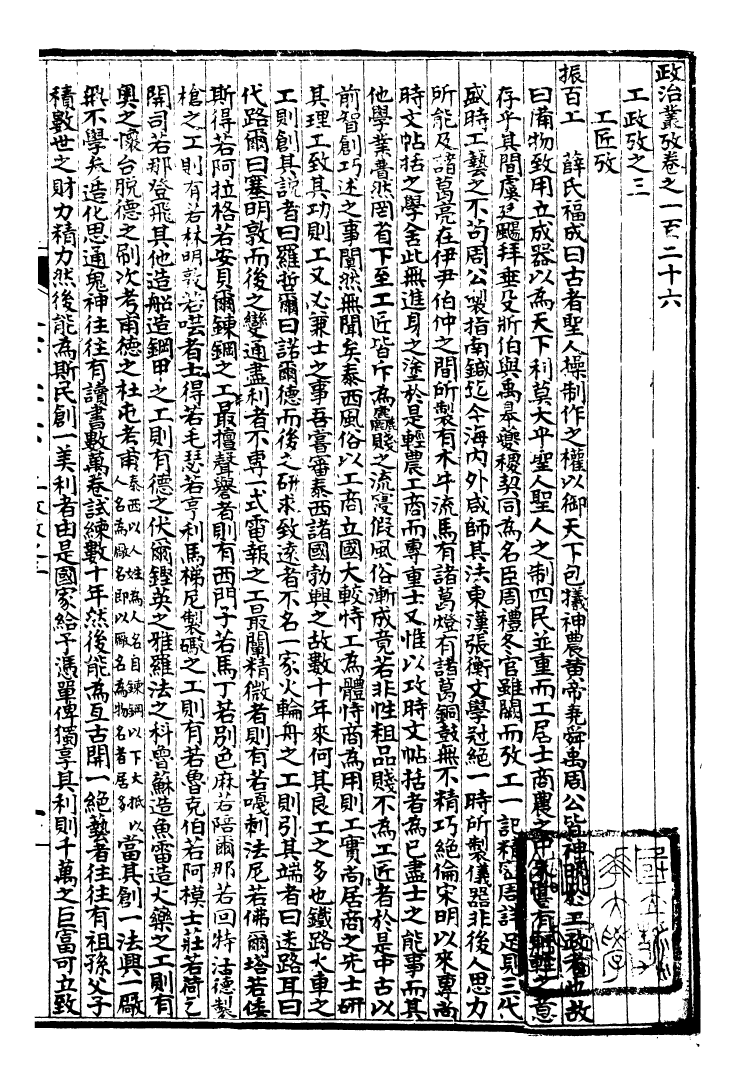 政治叢攷卷之一百二十六
工政攷之三
工匠攷
振百工　薛氏福成曰古者聖人操制作之權以御天下包犧神農黃帝堯舜禹周公皆神明於工政者也故
曰備物致用立成器以為天下利莫大乎聖人聖人之制四民並重而工居士商農之中未嘗有軒輊之意
存乎其間虞廷颺拜垂殳斨伯與禹皋夔稷契同為名臣周禮冬官雖闕而攷工一記精密周詳足則三代
盛時工藝之不苟周公製指南鍼迄今海內外咸師其法東漢張衡文學冠絕一時所製儀器非後人思力
所能及諸葛亮在伊尹伯仲之間所製有木牛流馬有諸葛燈有諸葛銅鼓無不精巧絕倫宋明以來專尚
時文帖括之學舍此無進身之塗於是輕農工商而專重士又惟以攻時文帖括者為已盡士之能事而其
他學業瞢然罔省下至工匠皆斥為麤賤之流寖假風俗漸成竟若非性粗品賤不為工匠者於是中古以
前智創巧述之事闃然無聞矣泰西風俗以工商立國大較恃工為體恃商為用則工實尚居商之先士研
其理工致其功則工又必兼士之事吾嘗審泰西諸國勃興之故數十年來何其良工之多也鐵路火車之
工則創其說者曰羅哲爾曰諾爾德而後之研求致遠者不名一家火輪舟之工則引其端者曰迷路耳曰
代路爾曰塞明敦而後之變通盡利者不專一式電報之工最闡精微者則有若嘎剌法尼若佛爾塔若倭
斯得若阿拉格若安貝爾鍊鋼之工最擅聲譽者則有西門子若馬丁若別色麻若陪爾那若回特活德製
槍之工則有若林明敦若者士得若毛瑟若亨利馬梯尼製礮之工則有若魯克伯若阿模士莊若荷乞
開司若那登飛其他造船造鋼甲之工則有德之伏爾鏗英之雅羅法之科魯蘇造魚雷造火藥之工則有
奧之懷台脫德之刷次考甫德之杜屯考甫泰西以人姓為人名自鍊鋼以下大抵以人名為廠名即以廠名為物名者居多當其創一法興一廠
無不學矣造化思通鬼神往往有讀書數萬卷試練數十年然後能為亙古開一絕藝者往往有祖孫父子
積數世之財力精力然後能為斯民創一美利者由是國家給予憑單俾獨享其利則千萬之巨富可立致